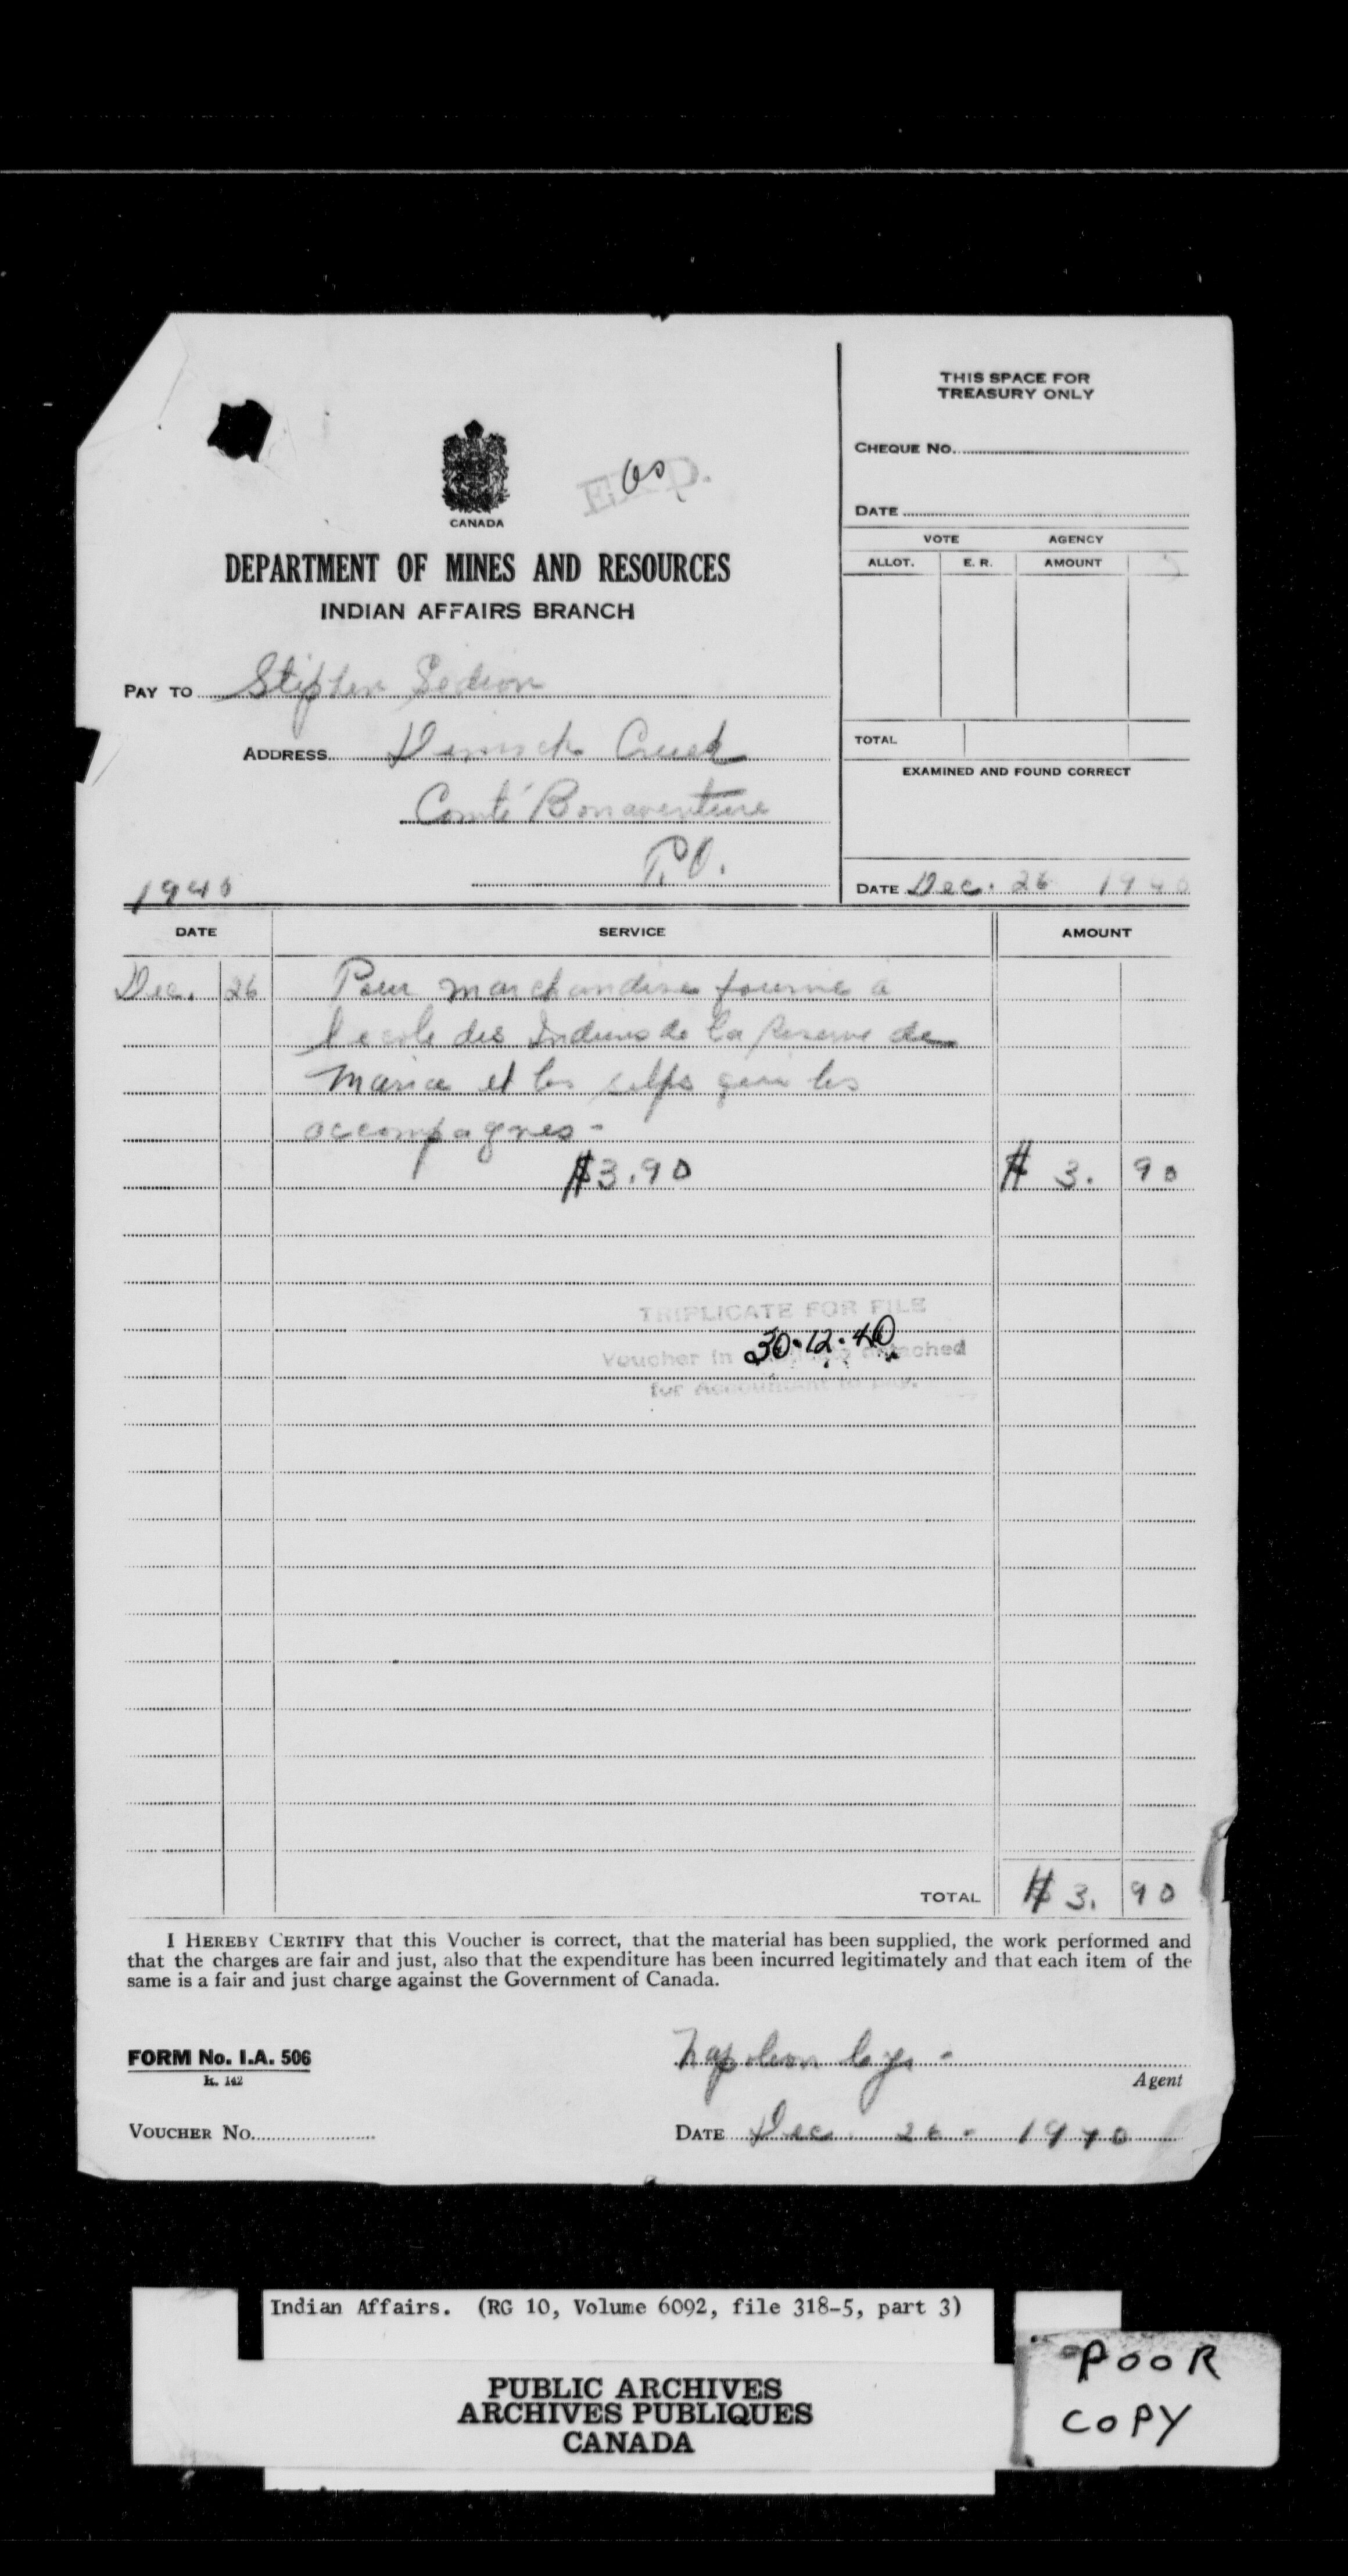 THIS SPACE FOR
TREASURY ONLY
CHEQUE NO.
DATE
VOTE AGENCY
ALLOT. E. R. AMOUNT
TOTAL
EXAMINED AND FOUND CORRECT
DATE Dec. 26 1940
CANADA
DEPARTMENT OF MINES AND RESOURCES
INDIAN AFFAIRS BRANCH
PAY TO Stephen
ADDRESS
Comté Bonaventure
P.Q.
1940
DATE SERVICE AMOUNT
Dec. 26 Pour marchandise fournie a
l'ecole des Indiens de la Reserve de
Maria et les qui les
accompagnes -
$3.90 $ 3. 90
TRIPLICATE FOR FILE
30-12-40
Voucher in attached
for Accountant to pay.
TOTAL $ 3. 90
I HEREBY CERTIFY that this Voucher is correct, that the material has been supplied, the work performed and
that the charges are fair and just, also that the expenditure has been incurred legitimately and that each item of the
same is a fair and just charge against the Government of Canada.
FORM No. I.A. 506
K. 142
Napoleon
Agent
VOUCHER NO.
DATE Dec 26 - 1940
Indian Affairs. (RG 10, Volume 6092, file 318-5, part 3)
PUBLIC ARCHIVES
ARCHIVES PUBLIQUES
CANADA
POOR
COPY